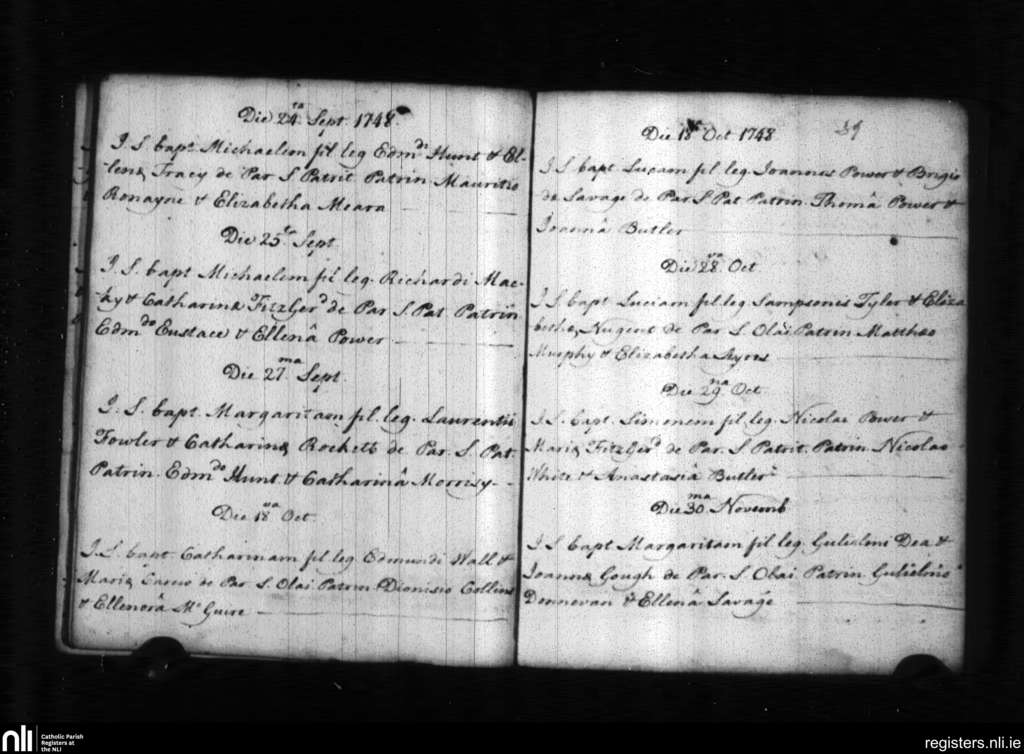 Die 24.ta Sept. 1748.
J S. bapt. Michaelem fil leg Edm.di Hunt & El-
lenæ Tracy de Par S. Patrit. Patrin. Mauritio
Ronayne & Elizabetha Meara
Die 25.ta Sept.
J. S. bapt Michaelem fil leg. Richardi Mac-
hy & Catharinæ FitzGer.d de Par S. Pat Patrin
Edm.do Eustace & Ellenâ Power
Die 27.ma Sept.
J. S. bapt. Margaritam fil. leg. Laurentii
Fowler & Catharinæ Rocketts de Par. S. Pat.
Patrin. Edm.do Hunt & Catharinâ Morrisy
Die 18.va Oct.
J. S. bapt. Catharinam fil leg. Edmundi Wall &
Mariæ Carew de Par. S. Olai. Patrin. Dionisio Collins
& Ellenorâ Mc Guire
Die 18 Oct 1748
39
J S bapt. Lucam fil leg. Joannes Power & Brigi-
da Savage de Par S Pat Patrin. Thomâ Power &
Joannâ Butler
Die 28.va Oct
J S bapt Luciam fil. leg Sampsonis Tyler & Eliza
bethæ Nugent de Par S. Olai. Patrin Mattheo
Murphy & Elizabetha Ayres
Die 29.na Oct
J S. bapt. Simonem fil leg. Nicolai Power &
Mariæ FitzGer.d de Par. S Patrit. Patrin Nicolao
White & Anastasiâ Butler
Die 30.ma Novemb
J S bapt Margaritam fil leg. Gulielmi Dea &
Joannæ Gough de Par. S. Olai Patrin. Gulielmo
Donnevan & Ellenâ Savage
nli
Catholic Parish
Registers at
the NLI
registers.nli.ie